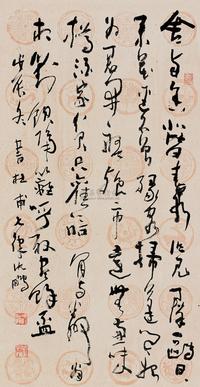 舍南舍北皆春水但見群鷗日日
來花徑不曾緣客掃蓬門今始
為君開盤飧市遠無兼味
樽酒家貧只舊醅肯與鄰翁
相對飲隔籬呼取盡餘盃
戊辰冬書杜甫七律沈鵬